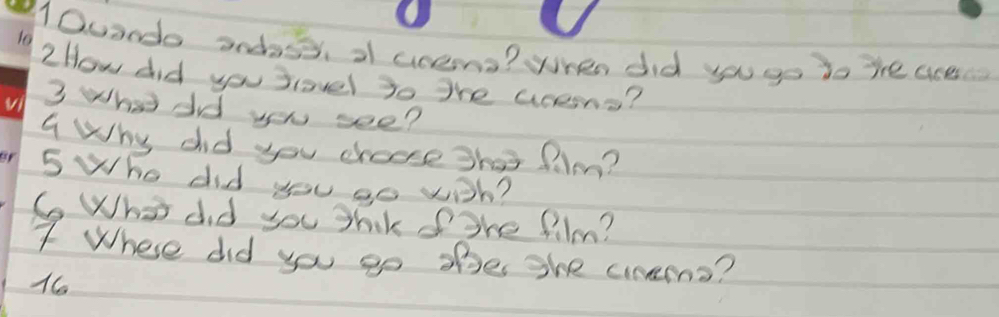 1 Quando andasti al cinema? When did you go to the cinema
2 How did you travel to the cinema?
3 What did you see?
4 Why did you choose that film?
5 Who did you go with?
6 What did you thik of the film?
7 Where did you go after the cinema?
16